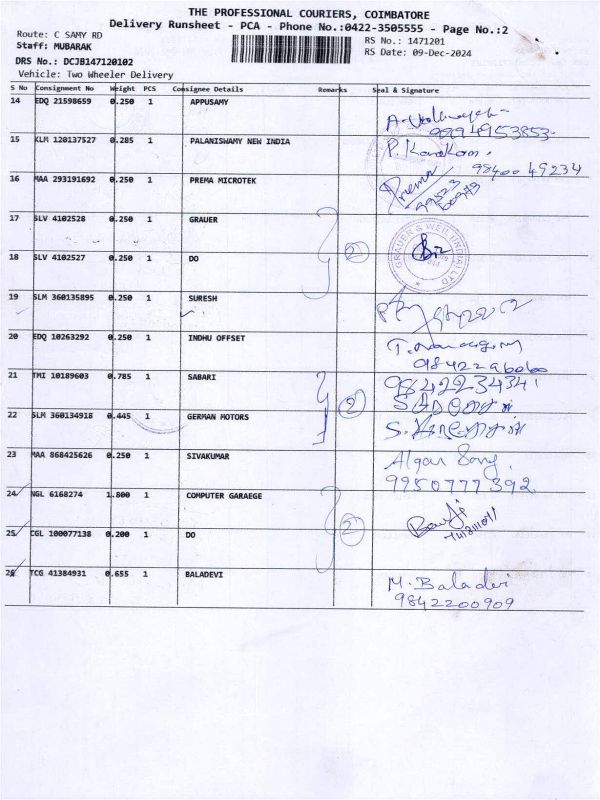 THE PROFESSIONAL COURIERS, COIMBATORE
Delivery Runsheet - PCA - Phone No.:0422-3505555 - Page No.:2
Route: C SAMY RD
Staff: MUBARAK
RS No.: 1471201
RS Date: 09-Dec-2024
DRS No.: DCJB147120102
Vehicle: Two Wheeler Delivery
S No Consignment No Weight PCS Consignee Details Remarks Seal & Signature
14 EDQ 21598659 0.250 1 APPUSAMY
9994953853
15 KLM 120137527 0.285 1 PALANISWAMY NEW INDIA P.
98400 49234
16 MAA 293191692 0.250 1 PREMA MICROTEK Prema
17 SLV 4102528 0.250 1 GRAUER
2 GRAUER & WEIL (INDIA) LTD
18 SLV 4102527 0.250 1 DO
19 SLM 360135895 0.250 1 SURESH
20 EDQ 10263292 0.250 1 INDHU OFFSET T.
21 TMI 10189603 0.785 1 SABARI 9842234341
2
22 SLM 360134918 0.445 1 GERMAN MOTORS S.
23 MAA 868425626 0.250 1 SIVAKUMAR
9950777392
24 NGL 6168274 1.800 1 COMPUTER GARAEGE
2
25 CGL 100077138 0.200 1 DO
26 TCG 41384931 0.655 1 BALADEVI M. Baladevi
9842200909